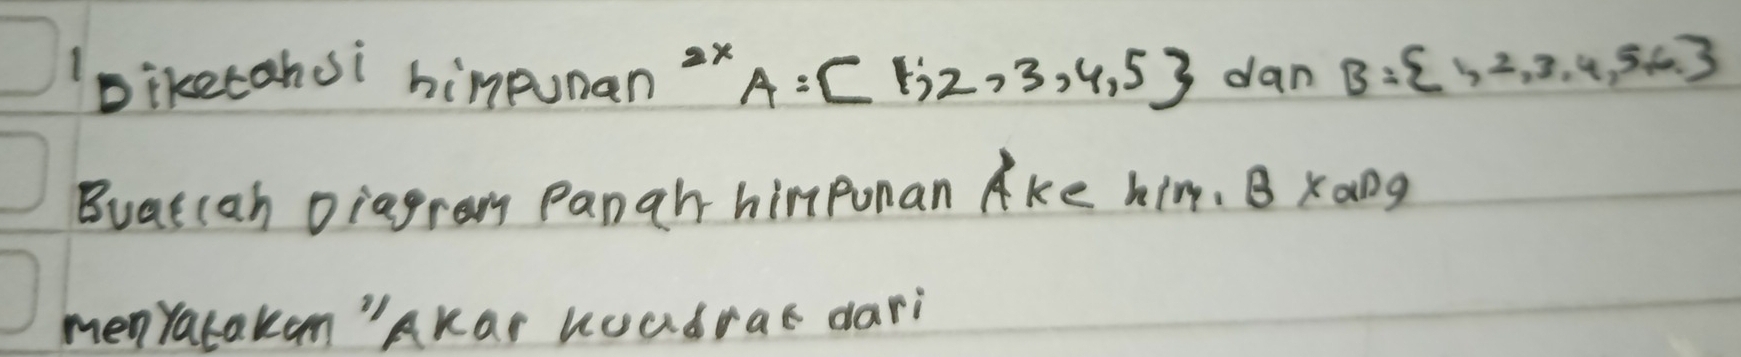 1 Diketahui himpunan 2x A = [ 1, 2, 3, 4, 5 } dan B = { 1, 2, 3, 4, 5, 6. }
Buatlah Diagram Panah himpunan A ke him. B yang
menyatakan "Akar kuadrat dari